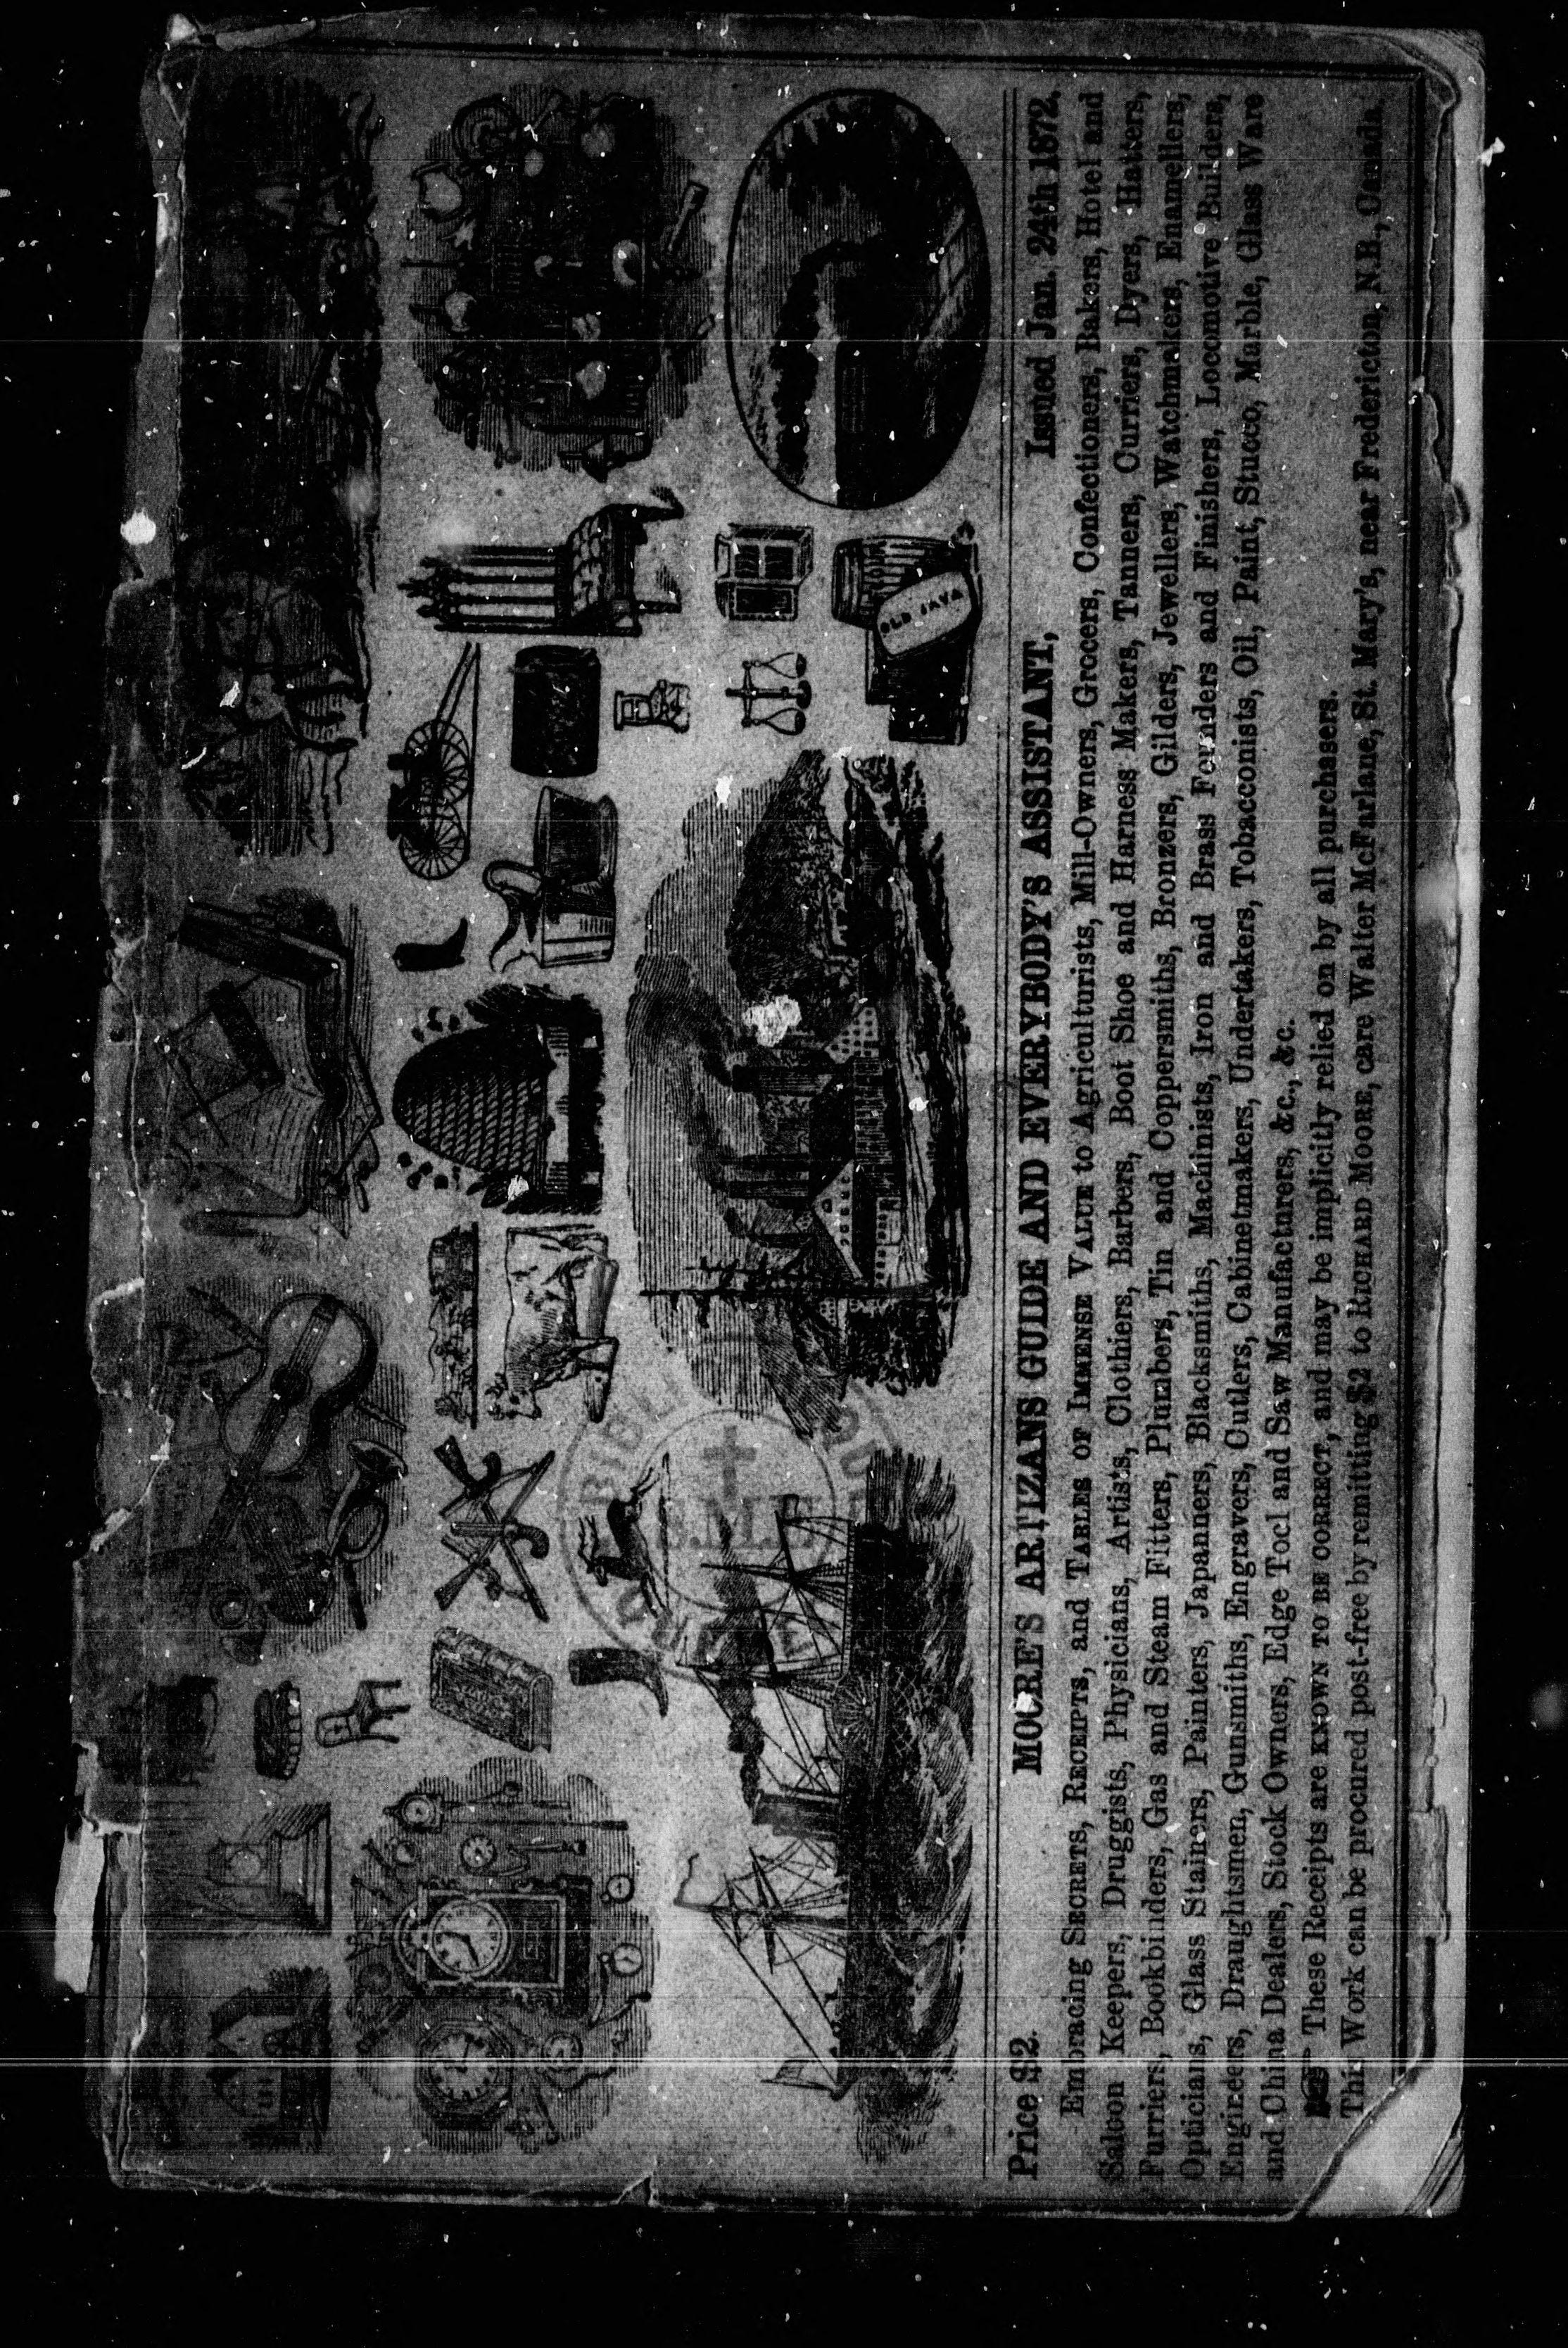 OLD JAVA
BIBL
S.M.E
Price $2.    MOORE'S ARTIZANS GUIDE AND EVERYBODY'S ASSISTANT,    Issued Jan. 24th 1872.
Embracing SECRETS, RECEIPTS, and TABLES OF IMMENSE VALUE to Agriculturists, Mill-Owners, Grocers, Confectioners, Bakers, Hotel and
Saloon Keepers, Druggists, Physicians, Artists, Clothiers, Barbers, Boot Shoe and Harness Makers, Tanners, Curriers, Dyers, Hatters,
Furriers, Bookbinders, Gas and Steam Fitters, Plumbers, Tin and Coppersmiths, Bronzers, Gilders, Jewellers, Watchmakers, Enamellers,
Opticians, Glass Stainers, Painters, Japanners, Blacksmiths, Machinists, Iron and Brass Founders and Finishers, Locomotive Builders,
Engineers, Draughtsmen, Gunsmiths, Engravers, Cutlers, Cabinetmakers, Undertakers, Tobacconists, Oil, Paint, Stucco, Marble, Glass Ware
and China Dealers, Stock Owners, Edge Tool and Saw Manufacturers, &c., &c.
These Receipts are KNOWN TO BE CORRECT, and may be implicitly relied on by all purchasers.
This Work can be procured post-free by remitting $2 to RICHARD MOORE, care Walter McFarlane, St. Mary's, near Fredericton, N.B., Canada.